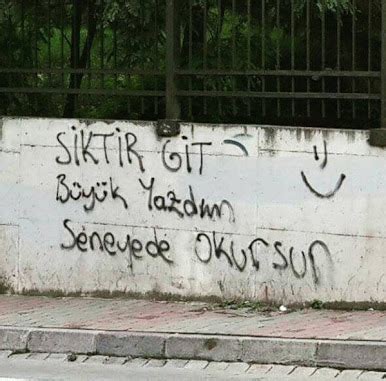 SiKTiR GiT :)
Büyük Yazdım
Seneyede OKURSUN